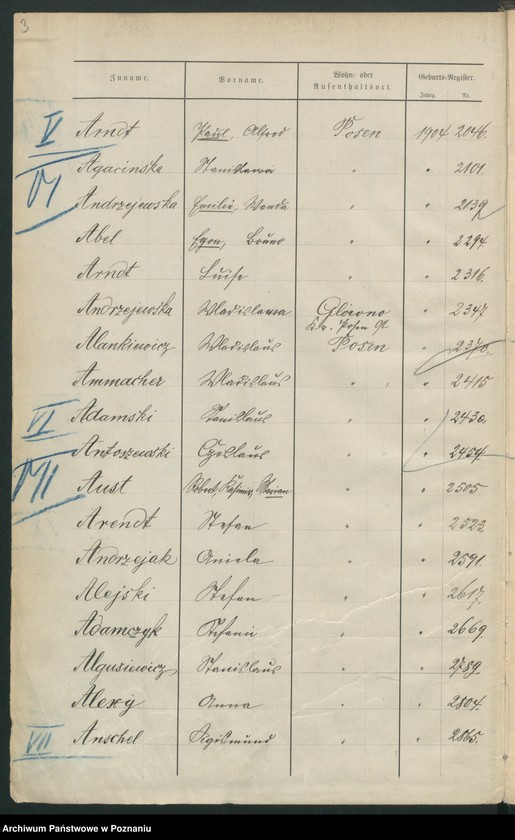 3
Zuname. Vorname. Wohn- oder Aufenthaltsort. Geburts-Register.
Jahrg. Nr.
V Arndt Paul, Alfred Posen 1904 2046.
VI Agacinska Stanislawa " " 2101.
Andrzejewska Emilie, Wanda " " 2139
Abel Egon, Bruno " " 2294.
Arndt Luise " " 2316.
Andrzejewska Wladislawa Glówno " 2347
Kr. Posen Ost
Alankiewicz Wladislaus Posen " 2370.
Ammacher Wladislaus " " 2415
VI Adamski Stanislaus " " 2430.
Antoszewski Czeslaus " " 2454.
VII Aust Robert, Kasimir, Marian " " 2505
Arendt Stefan " " 2523
Andrzejak Aniela " " 2591.
Alejski Stefan " " 2617.
Adamczyk Stefanie " " 2669.
Algusiewicz Stanislaus " " 2789.
Alexy Anna " " 2804.
VII Anschel Sigismund " " 2865.
Archiwum Państwowe w Poznaniu